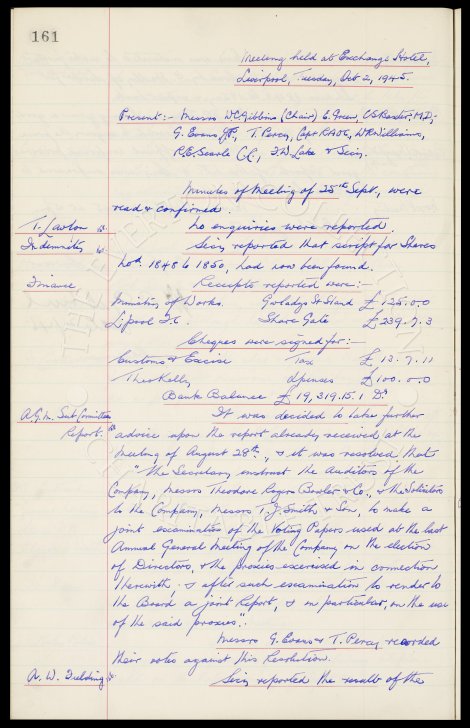 161
Meeting held at Exchange Hotel,
Liverpool, Tuesday, Oct 2, 1945.
Present:- Messrs W.C. Gibbins (Chair) E. Green, C.S. Baxter, M.D;-
G. Evans, J.P., T. Percy, Capt R.A.06, W.R. Williams,
R.E. Searle C.C., F.W. Lake & Secy.
Minutes of Meeting of 25th Sept, were
read & confirmed.
T. Lawton No enquiries were reported.
Indemnities Secy reported that script for Shares
Nos. 1848 to 1850, had now been found.
Finance, Receipts reported were:-
Ministry of Works. Gwladys St Stand £125.0.0
L'pool F.C. Share Gate £239.7.3
Cheques were signed for:-
Customs & Excise Tax £13.7.11
Theo Kelly £100.0.0
Bank Balance £19,319.15.1 Dr
A.G.M. Sub Committee It was decided to take further
Report. advice upon the report already received at the
Meeting of August 28th., & it was resolved that
"The Secretary instruct the Auditors of the
Company, Messrs Theodore Rogers Bowler & Co., & the Solicitors
to the Company, Messrs T.J. Smith & Son, to make a
joint examination of the Voting Papers used at the last
Annual General Meeting of the Company on the election
of Directors, & the proxies exercised in connection
therewith, & after such examination to render to
the Board a joint Report, & in particular, on the use
of the said proxies".
Messrs G. Evans & T. Percy recorded
their votes against this Resolution.
A. W. Fielding Secy reported the result of the